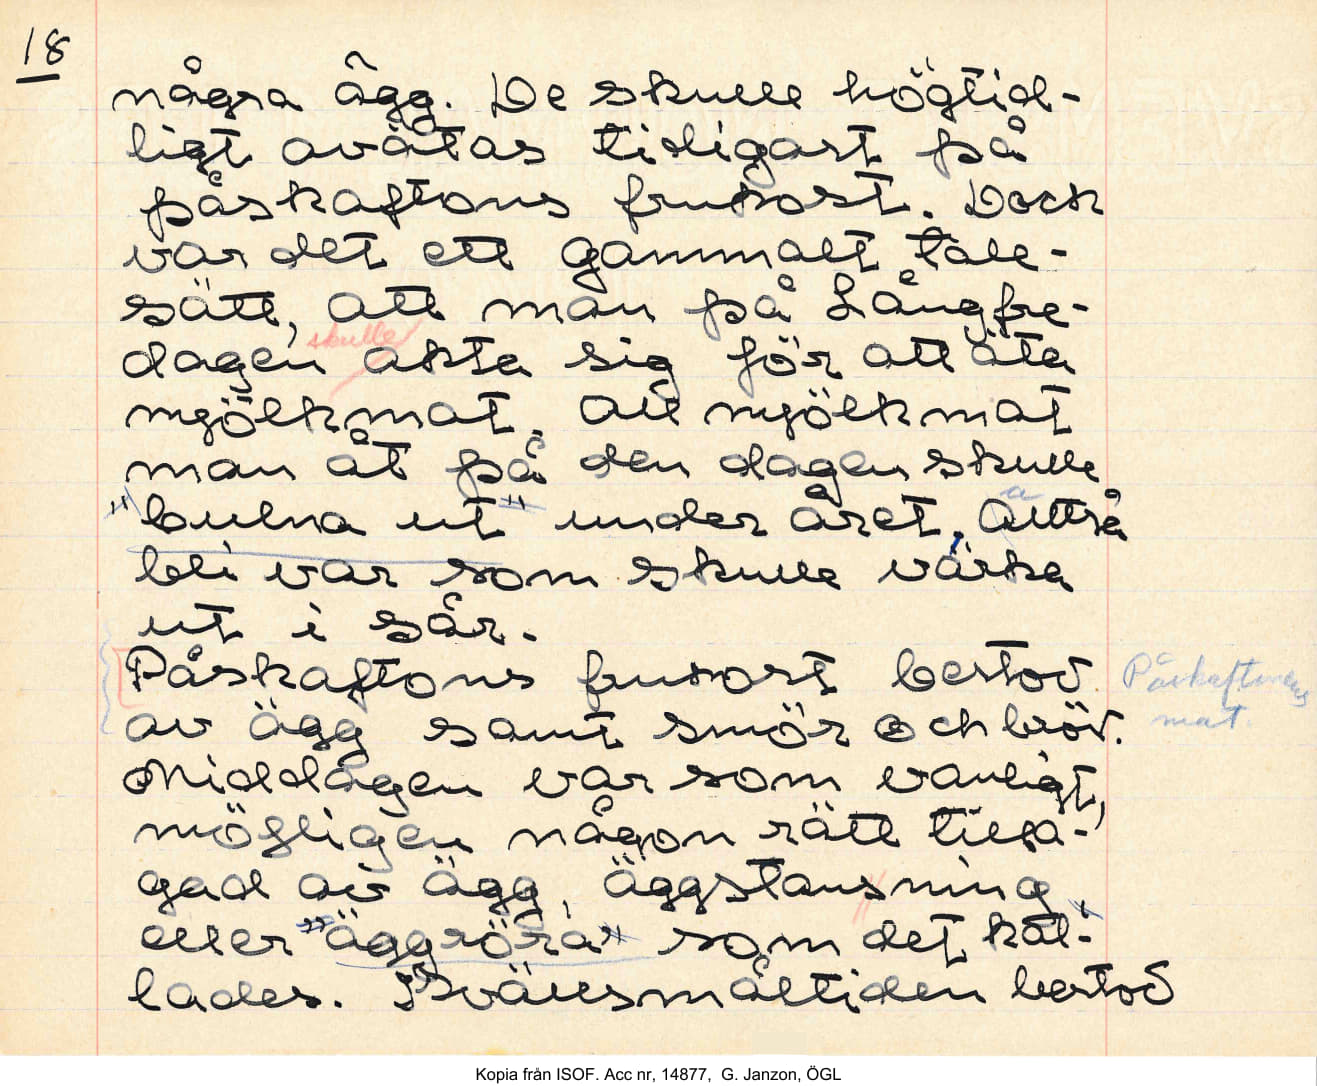 18
några ägg. De skulle högtid-
ligt avätas tidigast på
påskaftons frukost. Dock
var det ett gammalt tale-
sätt, att man på Långfre-
dagen skulle akta sig för att äta
mjölkmat. All mjölkmat
man åt på den dagen skulle
"bulna ut" under året, alltså
bli var som skulle värka
ut i sår.
Påskaftons frukost bestod
av ägg samt smör och bröd.
Påskaftonens
mat.
Middagen var som vanligt,
möjligen någon rätt tilla-
gad av ägg, äggstansning,
eller "äggröra" som det kal-
lades. Kvällsmåltiden bestod
Kopia från ISOF. Acc nr, 14877, G. Janzon, ÖGL